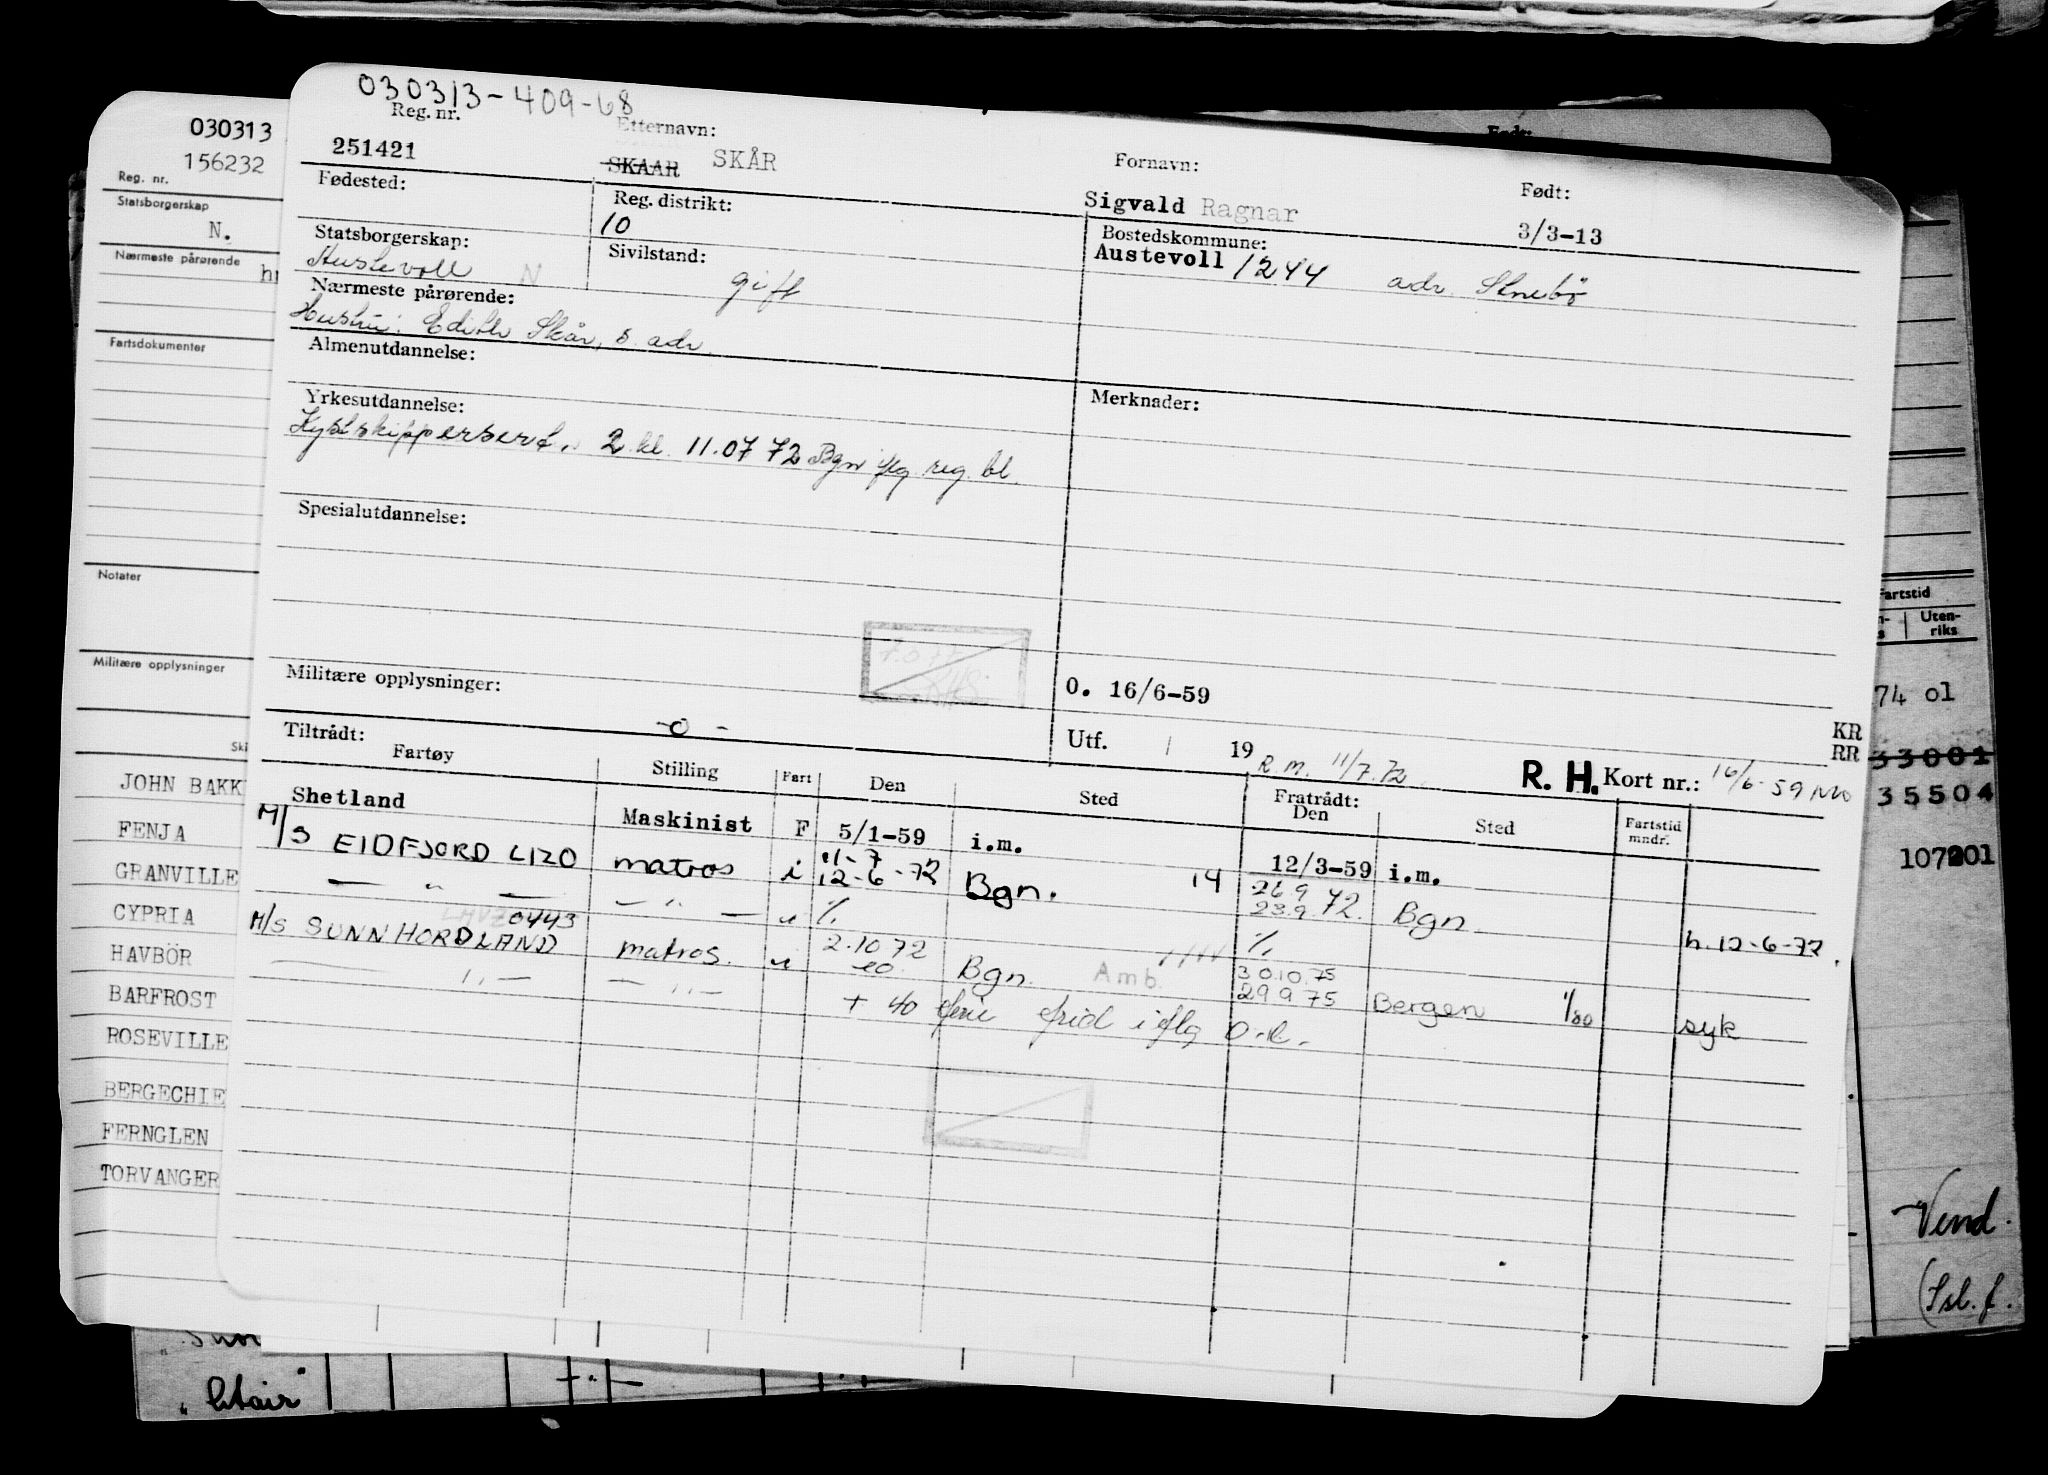 030313-409-68
Reg. nr. Etternavn: Fornavn: Født:
251421 SKAAR SKÅR Sigvald Ragnar 3/3-13
Fødested: Reg. distrikt: Bostedskommune:
10 Austevoll 1244 adr.
Statsborgerskap: Sivilstand:
Austevoll N gift
Nærmeste pårørende:
Hustru: Edith Skår, s. adr.
Almenutdannelse:
Yrkesutdannelse: Merknader:
Kystskippersert. 2 kl. 11.07 72 Bgn iflg reg. bl.
Spesialutdannelse:
Militære opplysninger: O. 16/6-59
-o- Utf. / 19 R.M. 11/7.72. R. H. Kort nr.: 16/6-59
Tiltrådt: Fratrådt:
Fartøy Stilling Fart Den Sted Den Sted Fartstid mndr.
Shetland Maskinist F 5/1-59 i.m. 12/3-59 i.m.
M/S EIDFJORD LIZO matros i 11-7 12-6-72 Bgn. 14 26.9 23.9.72. Bgn
— " — — " — " % % h. 12-6-72.
0443
M/S SUNNHORDLAND matros. " 2.10 72 Bgn. Amb. 30.10.75 29 9 75 Bergen 1/80 syk
— " — — " — + 40 iflg
030313
156232
Reg. nr.
Statsborgerskap
N.
Nærmeste pårørende
Fartsdokumenter
Notater
Militære opplysninger
Ski
JOHN BAKK
FENJA
GRANVILLE
CYPRIA
HAVBÖR
BARFROST
ROSEVILLE
BERGECHIE
FERNGLEN
TORVANGER
Fartstid
Uten-
riks
74 01
KR
RR
33001
35504
107201
Vend.